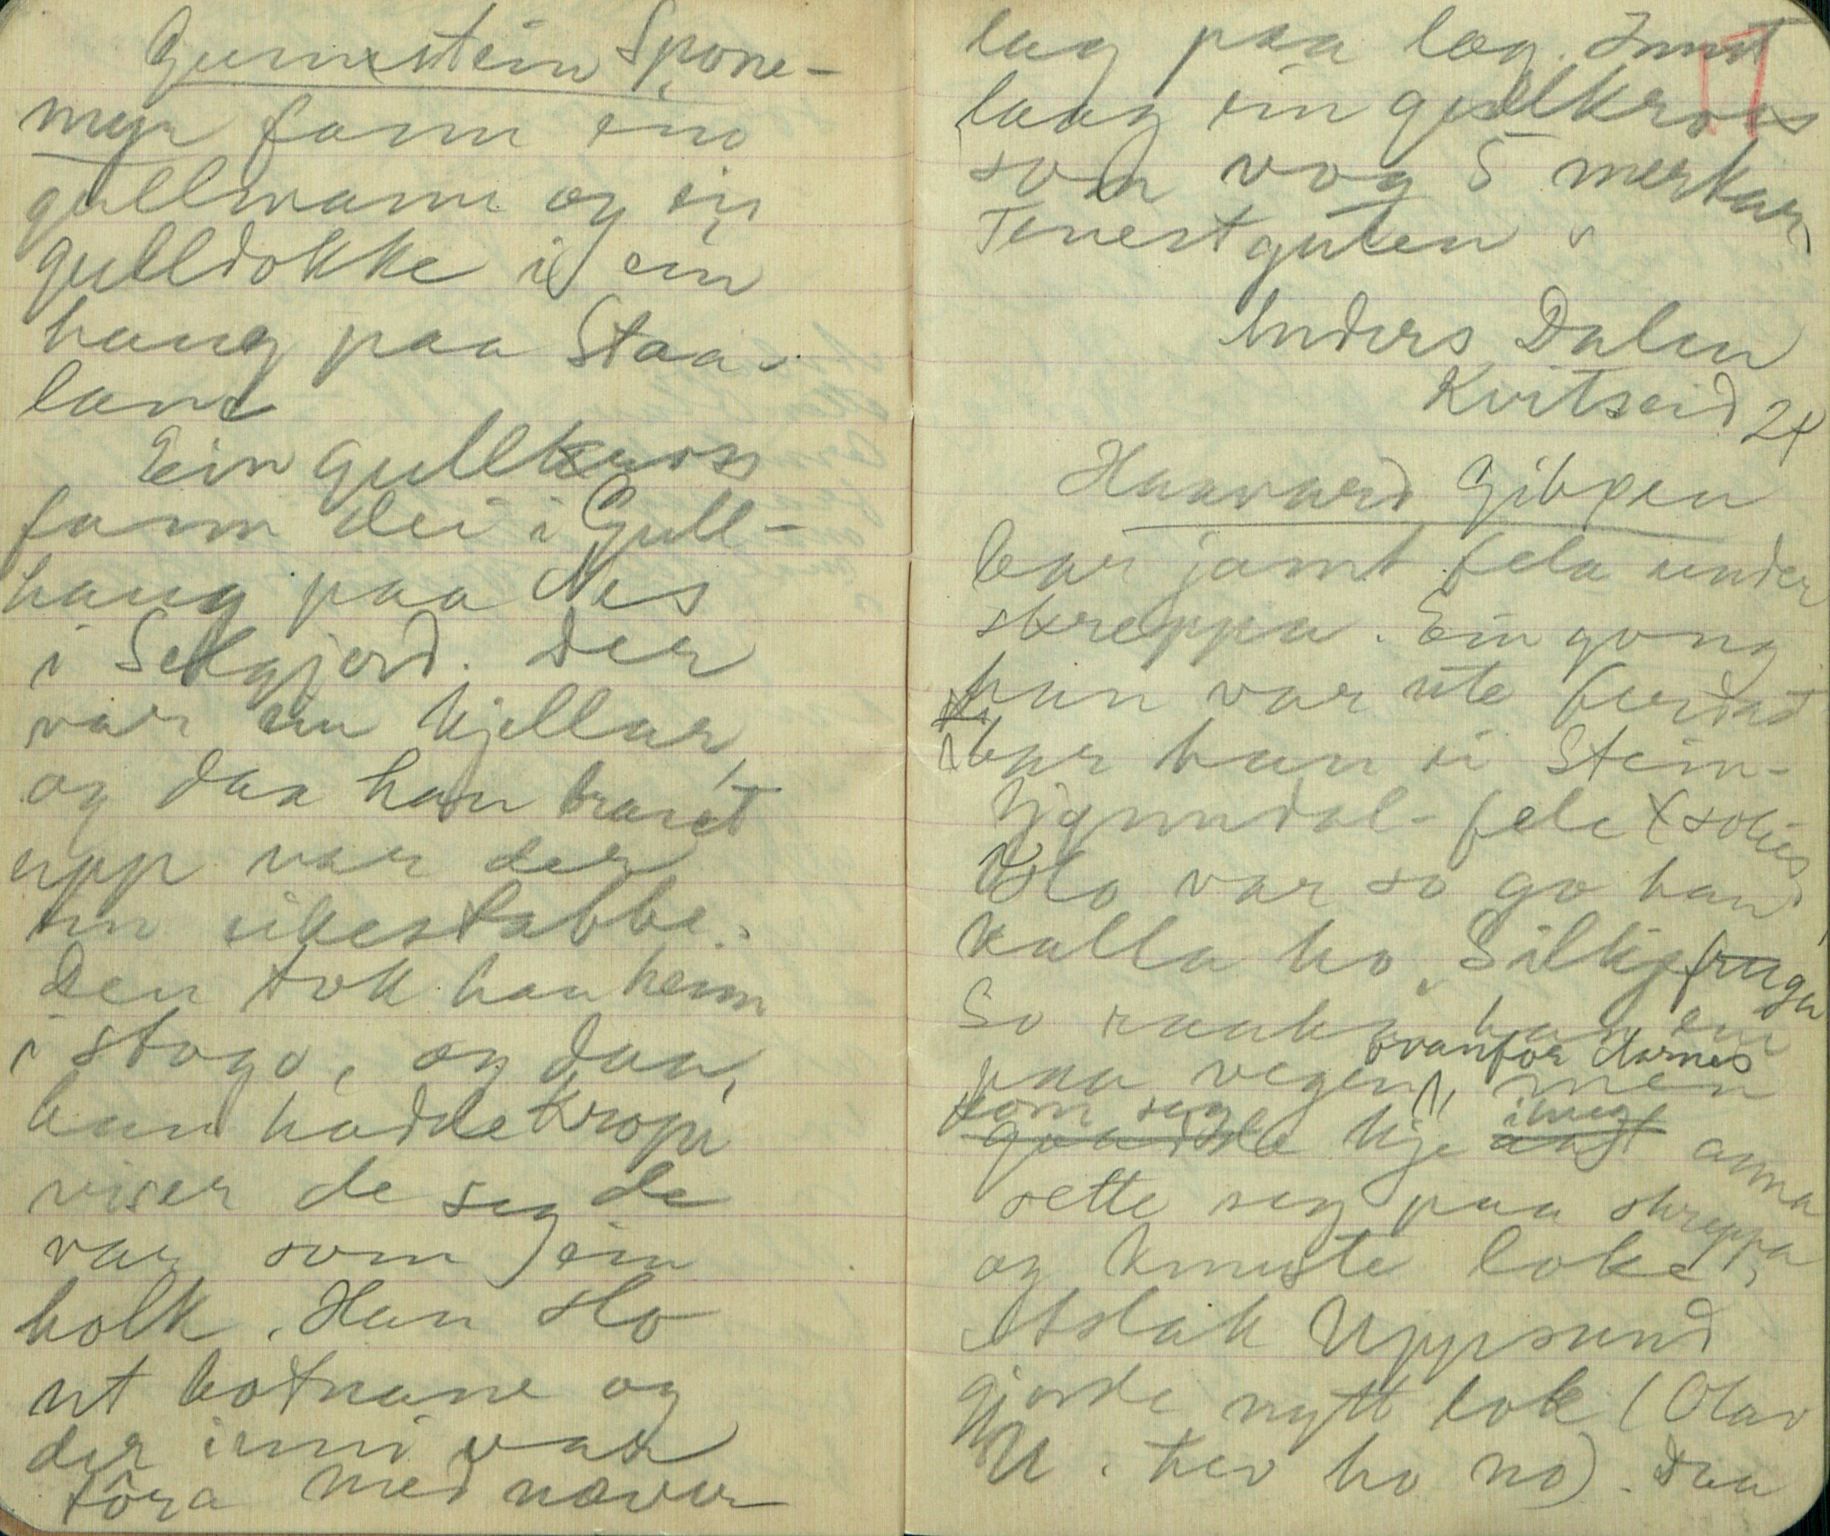 Gunnstein Spone-
myr fann ein
gullmann og ei
gulldokke i ein
haug paa Staa-
land
Ein gullkross
fann dei i Gull-
haug paa Nes
i Selgjord. Der
var ein kjellar,
og daa han braut
upp var der
ein eikestabbe.
Den tok han heim
i stogo, og daa
han hadde
viser de seg de
var som ein
holk. Han slo
ut botnane og
der inni var
fôra med never
lag paa lag. Inst
laag ein gullkross
som vog 5 merkar
Tenestguten
Anders Dalen
Kvitseid 24
Haavard Gibøen
bar jamt fela under
skreppa. Ein gong
han var ute
bar han ei Stein-
kjønndal-fele
Ho var so go han
kalla ho "Silkjefruga
So raaka han ein
paa vegen ovanfor Aarnes, men
kom seg kje imot anna
sette seg paa skreppa
og knuste loket,
Aslak Uppsund
gjorde nytt lok (Olav
U. hev ho no). Daa